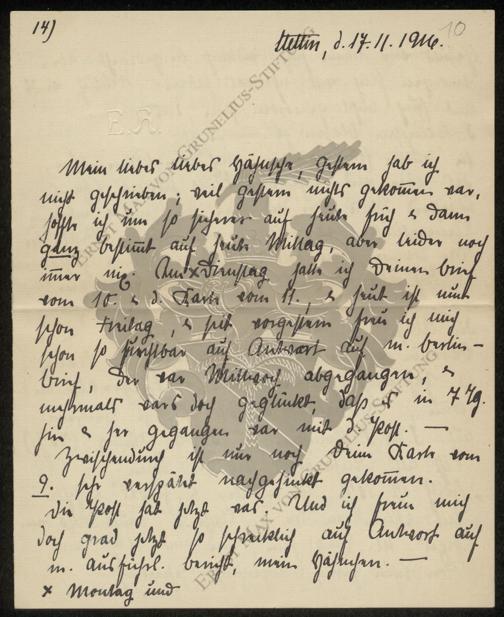 14)
10
Stettin, d. 17.11.1916.
E.R.
Mein liebes liebes Hähnsche, gestern hab ich
nicht geschrieben; weil gestern nichts gekommen war,
hoffte ich um so sicherer auf heute früh & dann
ganz bestimmt auf heute Mittag, aber leider noch
immer nix. Am x Dinstag hatte ich Deinen brief
vom 10. & d. Karte vom 11., & heut ist nun
schon Freitag, & seit vorgestern freu ich mich
schon so furchtbar auf Antwort auf m. berlin-
brief, der war Mittwoch abgegangen, &
mehrmals wars doch geglückt, dass es in 7 Tg.
hin & her gegangen war mit d. Post. —
Zwischendurch ist nur noch Deine Karte vom
9. sehr verspätet nachgehinkt gekommen.
Die Post hat jetzt was. Und ich freu mich
doch grad jetzt so schrecklich auf Antwort auf
m. ausführl. bericht, mein Hähnchen. —
x Montag und
ERNST MAX VON GRUNELIUS-STIFTUNG
ERNST MAX VON GRUNELIUS-STIFTUNG